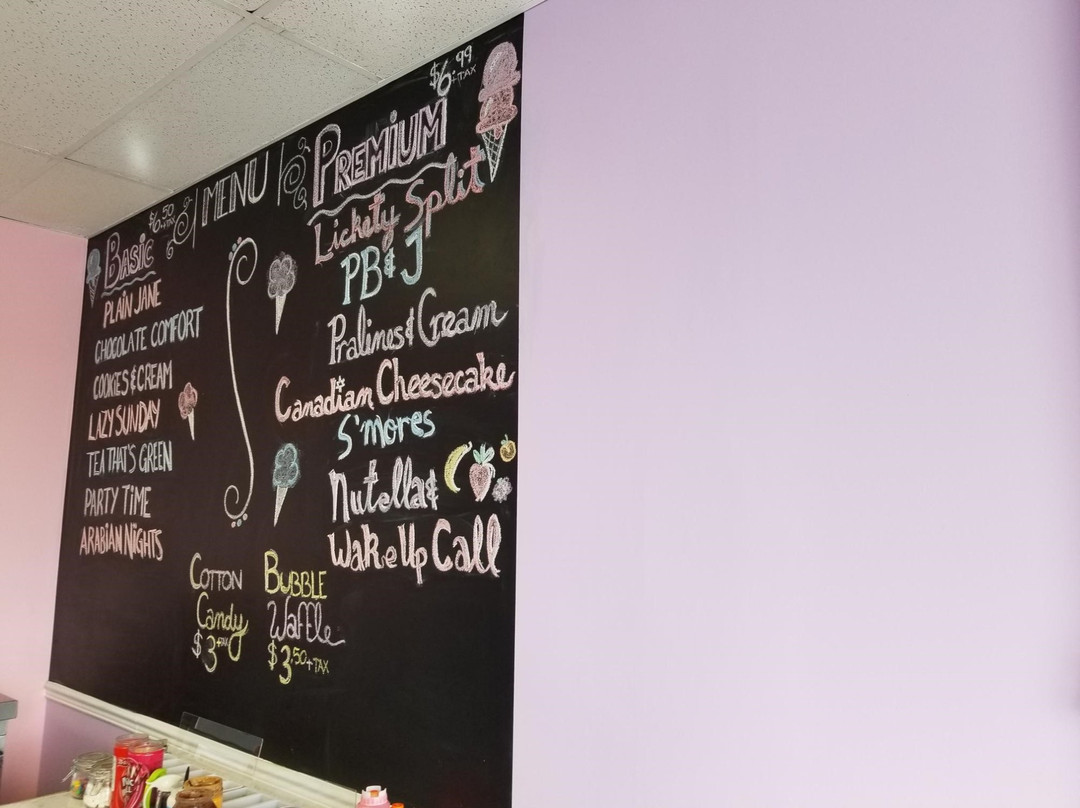 MENU
$6.50
+TAX
BASIC
PLAIN JANE
CHOCOLATE COMFORT
COOKIES & CREAM
LAZY SUNDAY
TEA THAT'S GREEN
PARTY TIME
ARABIAN NIGHTS
$6.99
+TAX
PREMIUM
Lickety Split
PB & J
Pralines & Cream
Canadian Cheesecake
S'mores
Nutella &
Wake Up Call
COTTON
Candy
$3 +TAX
BUBBLE
Waffle
$3.50 +TAX